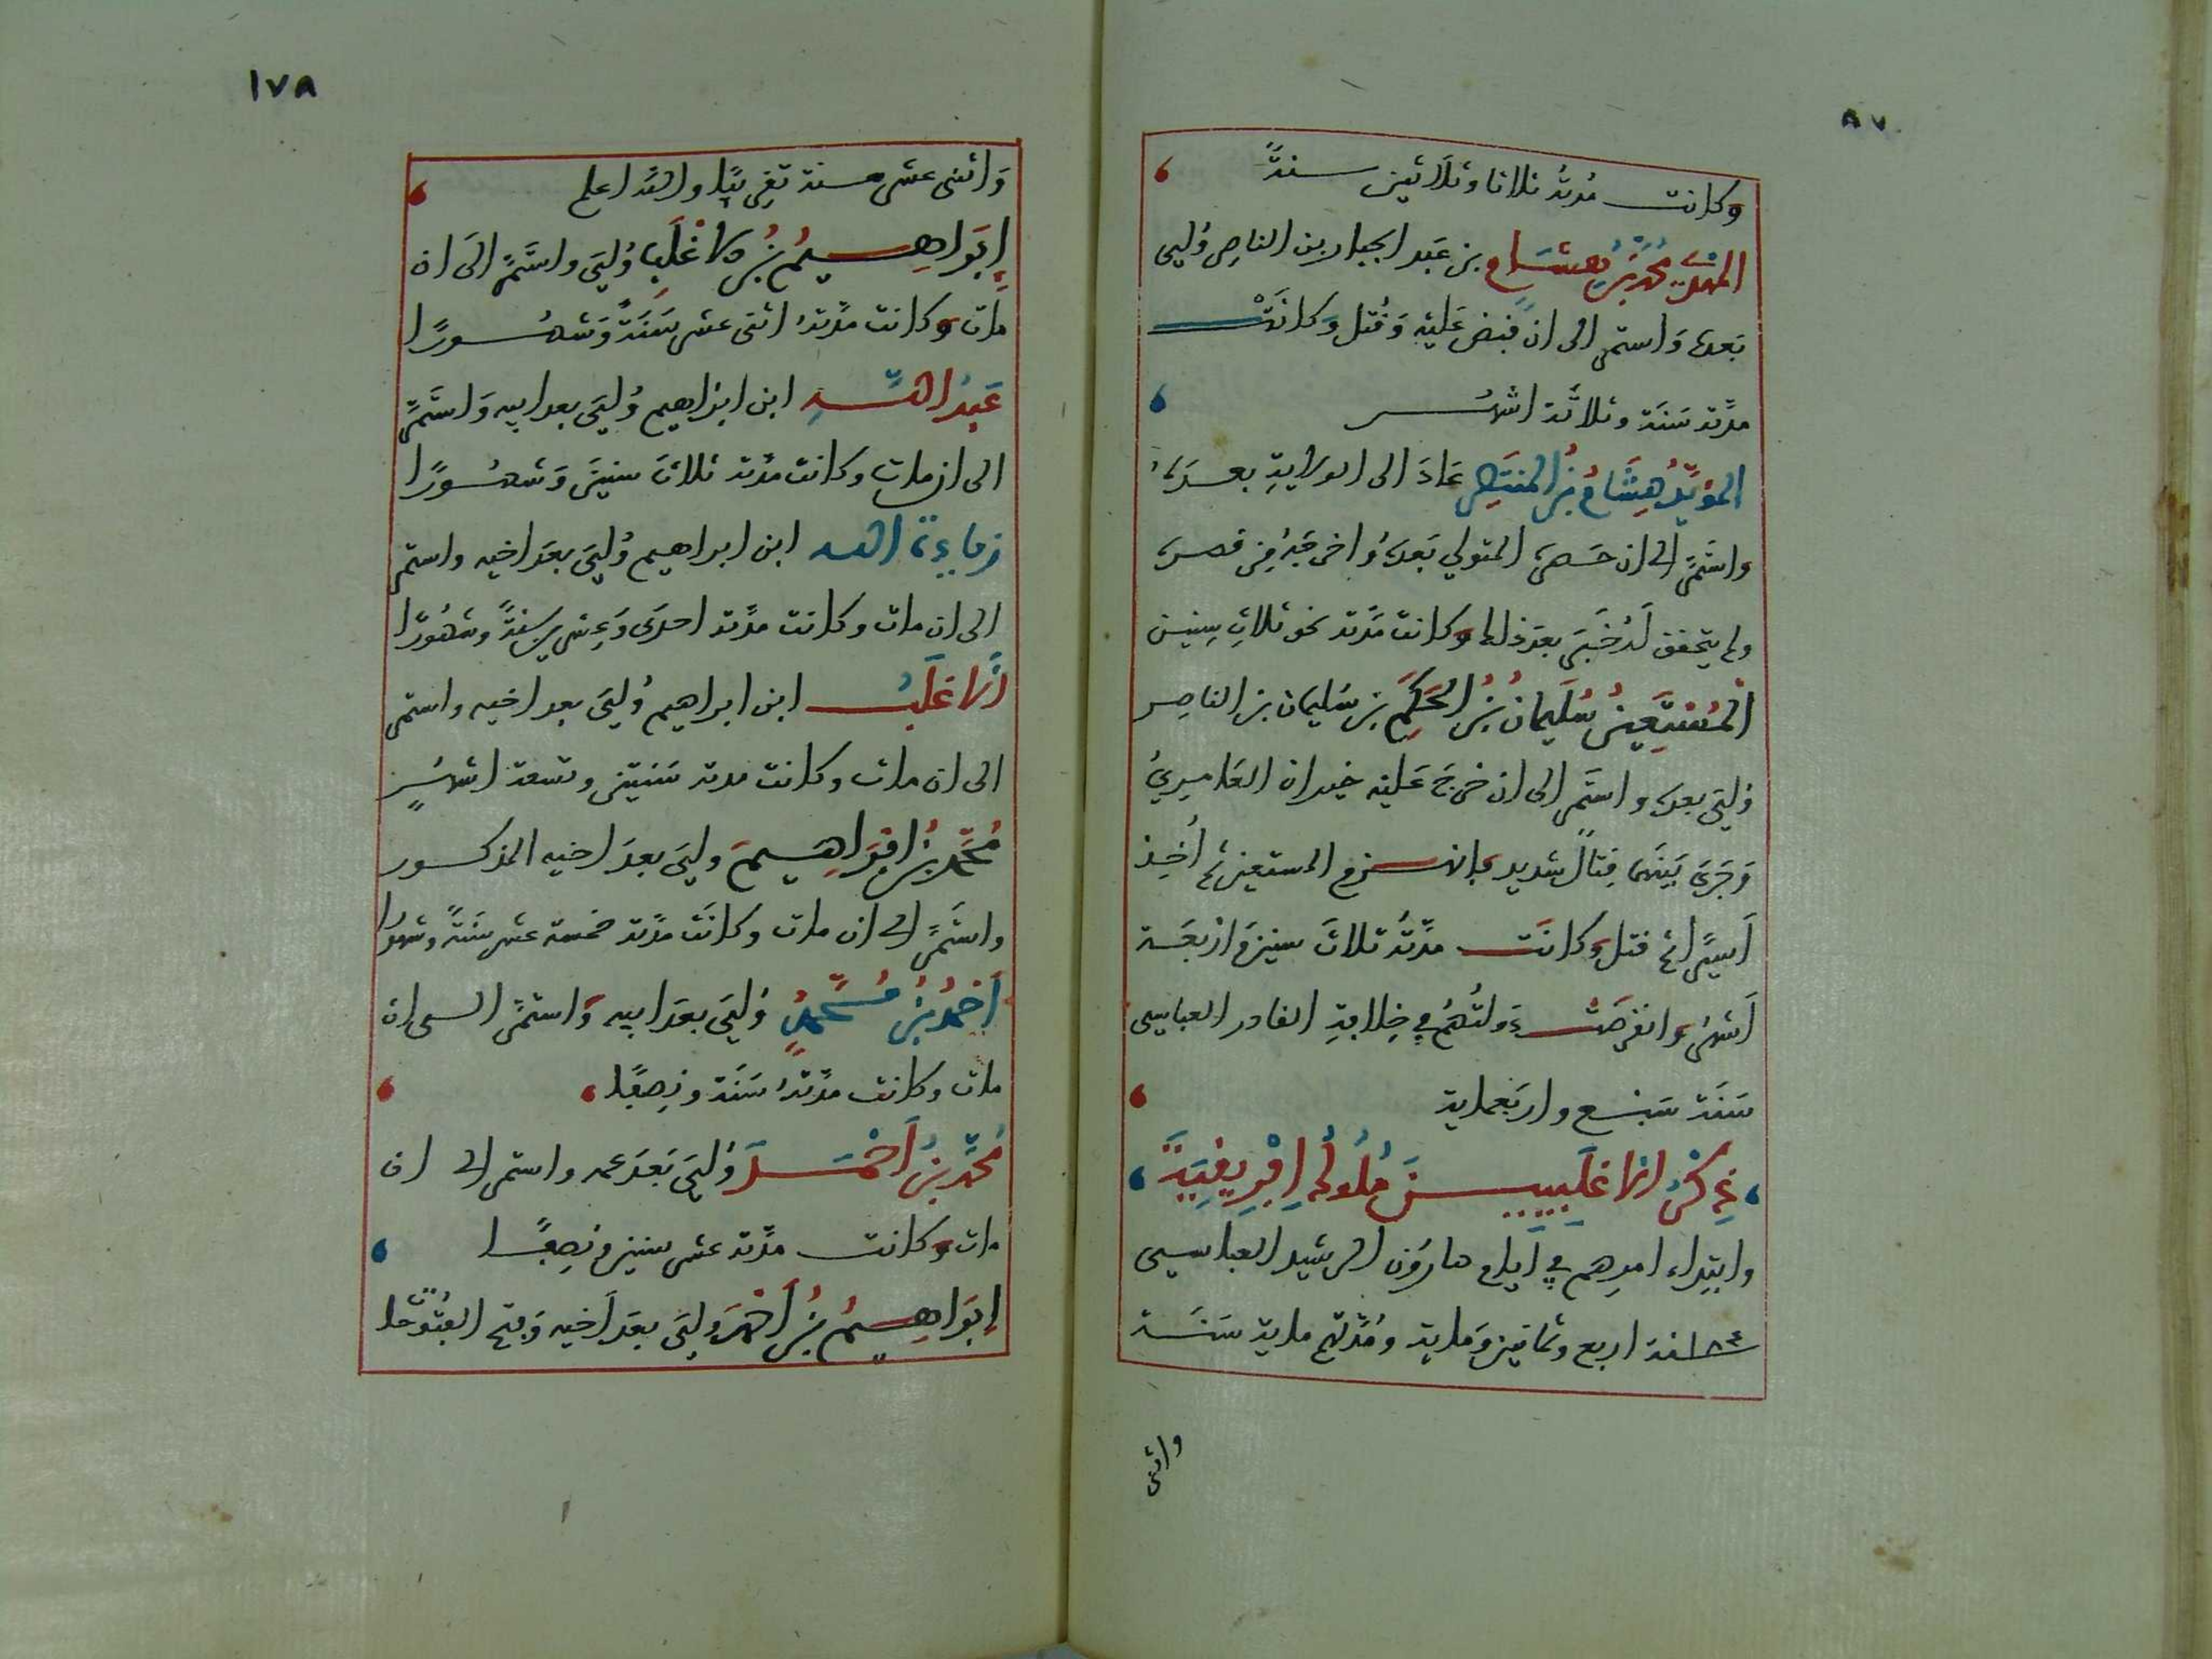 ٨٧
وكانت مدته ثلاثا وثلاثين سنةً
المهدي محمد بن هشام بن عَبد الجبار بن الناصر وُلِيى
بَعده وَاستمر الى ان قبض عَليْه وَقُتل وَكانَتْ
مدّته سَنَة وثلاثَة اشهُر
المؤيّدُ هِشَامُ بنُ المنتَصِر عَادَ الى الولايةِ بعدَهُ
واستَمرّ الى ان حَصَره المتولي بَعدَهُ واخرجَهُ مِن قصره
ولم يتحقق لَهُ خَبَر بعدَ ذلك وكانت مَدّته نحو ثلاثِ سِنين
المُسْتَعِين سُلَيمانُ بنُ الحَكَمِ بن سُليمان بن الناصِر
وُليَ بعده واستَمر الى ان خرجَ عَليْه خيران العَامِريُ
وَجَرَى بَينَهمَا قِتالٌ شديد فانهزم المستعين ثم أُخِذ
أَسِيرًا ثم قتل وكانَت مدّتُهُ ثلاثَ سنين وَاربَعَة
أَشهُر وانقرضَتْ دَولتُهُم في خِلافةِ القادر العباسِى
سَنَة سَبْع واربَعماية
ذِكْرُ الاغلَبيينَ مُلوكِ افْرِيقِيَةَ
وابتِداء امرِهم في أيام هارُون الرشيد العباسيى
١٨٤ سنة اربع وثمانين وَماية ومُدّتهم ماية سَنَة
واثنى
١٧٨
وَاثنى عشر سنة تقرِيبًا والله اعلم
إبرَاهِيمُ بنُ الاغْلَبِ وُليَ واستَمرّ الَى ان
مات وكانت مدّتهُ اثنى عشر سَنَةً وَشهُورًا
عَبدُ اللّهِ ابن ابراهيم وُليَ بعد ابيه وَاستَمرّ
الى ان مات وكانت مدّته ثلاثَ سنينَ وَشهُورًا
زياده الله ابن ابراهيم وُليَ بعدَ اخيه واستمر
الى ان مات وكانت مدّته احدَى وَعِشرين سنةً وشهُورًا
أَلاغلَبُ ابن ابراهيم وُليَ بعد اخيه واستمر
الى ان مات وكانت مدته سَنتين وتسعة اشهُرٍ
مُحمَّد بنُ ابرَاهِيمَ وليَ بعدَ اخيه المذكور
واستَمرّ الى ان مات وكانَت مدّته خمسة عشر سَنَةً وشهورا
أَحمدُ بنُ مُحَمَّدٍ وُليَ بعدَ ابيه وَاستَمرّ الى ان
مات وكانت مدّتهُ سَنَة ونِصفًا
مُحمّدُ بنُ أَحْمَدَ وُليَ بَعدَ عمه واستمر الى ان
مات وكانت مدّته عشر سنين ونِصفًا
إبرَاهِيمُ بنُ أحمَدَ وليَ بعدَ أخيه وَفتح الفتُوحا